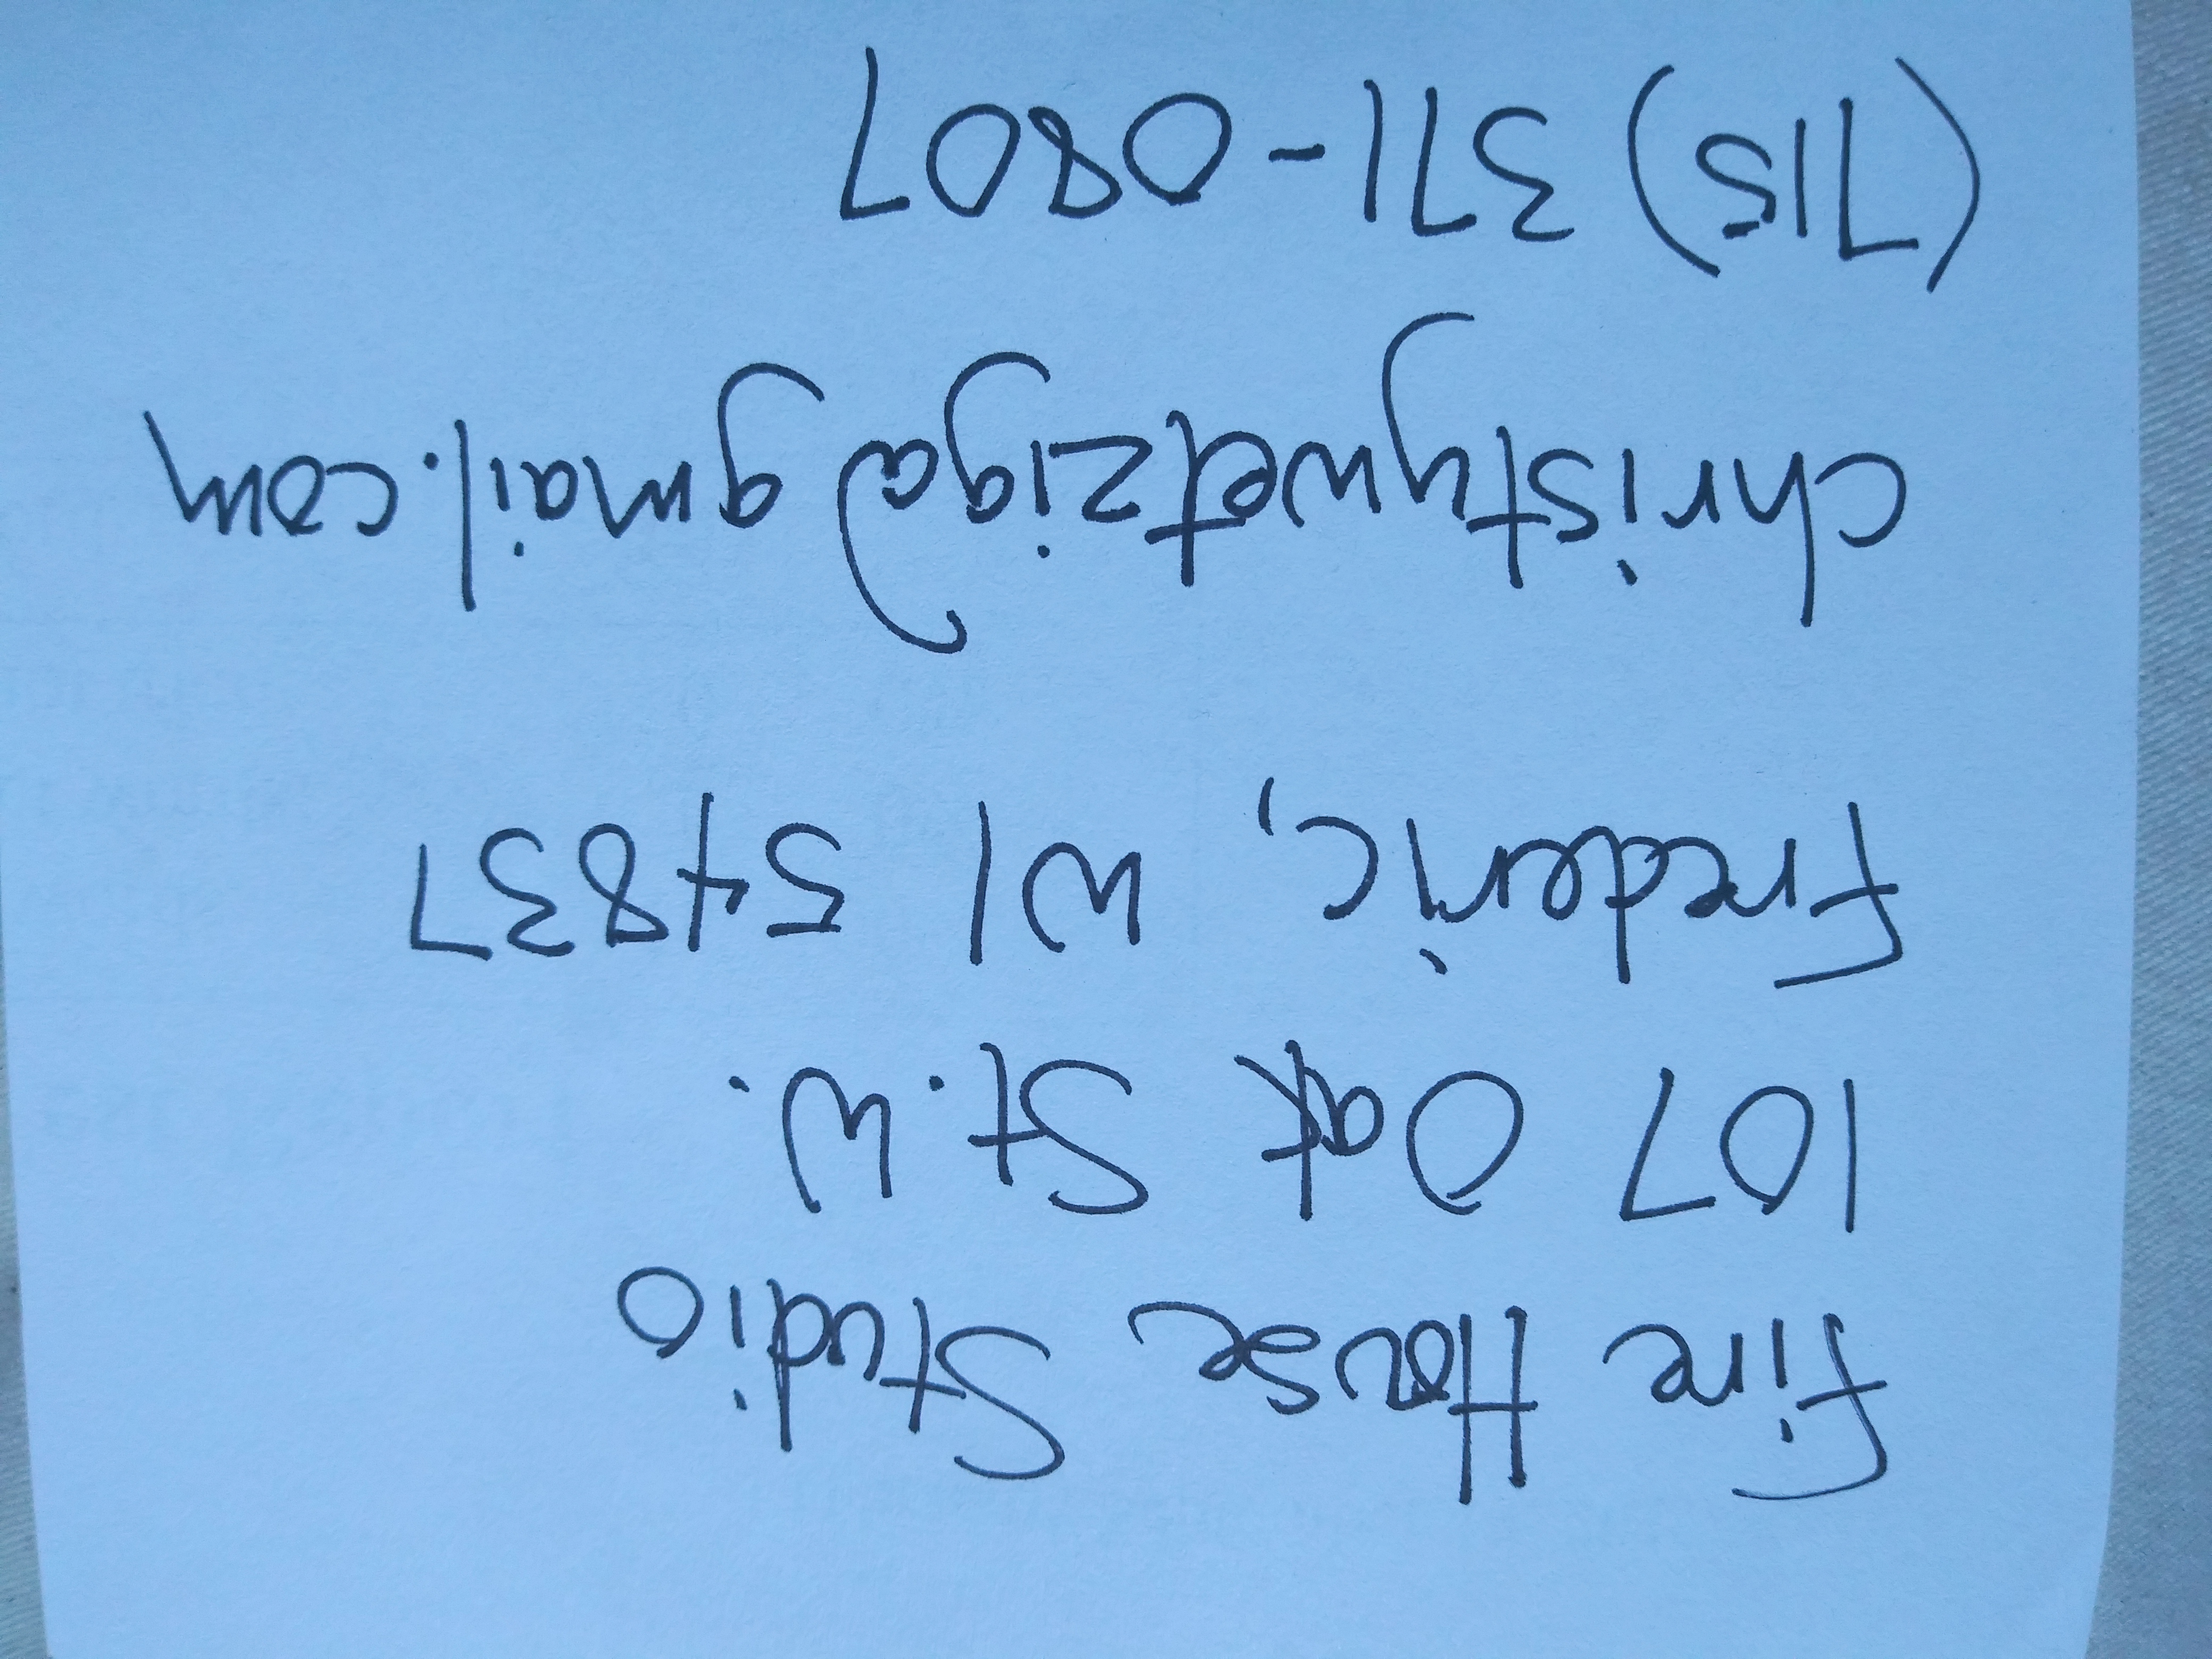 Fire House Studio
107 Oak St. W.
Frederic, WI 54837
christywetzig@gmail.com
(715) 371-0807